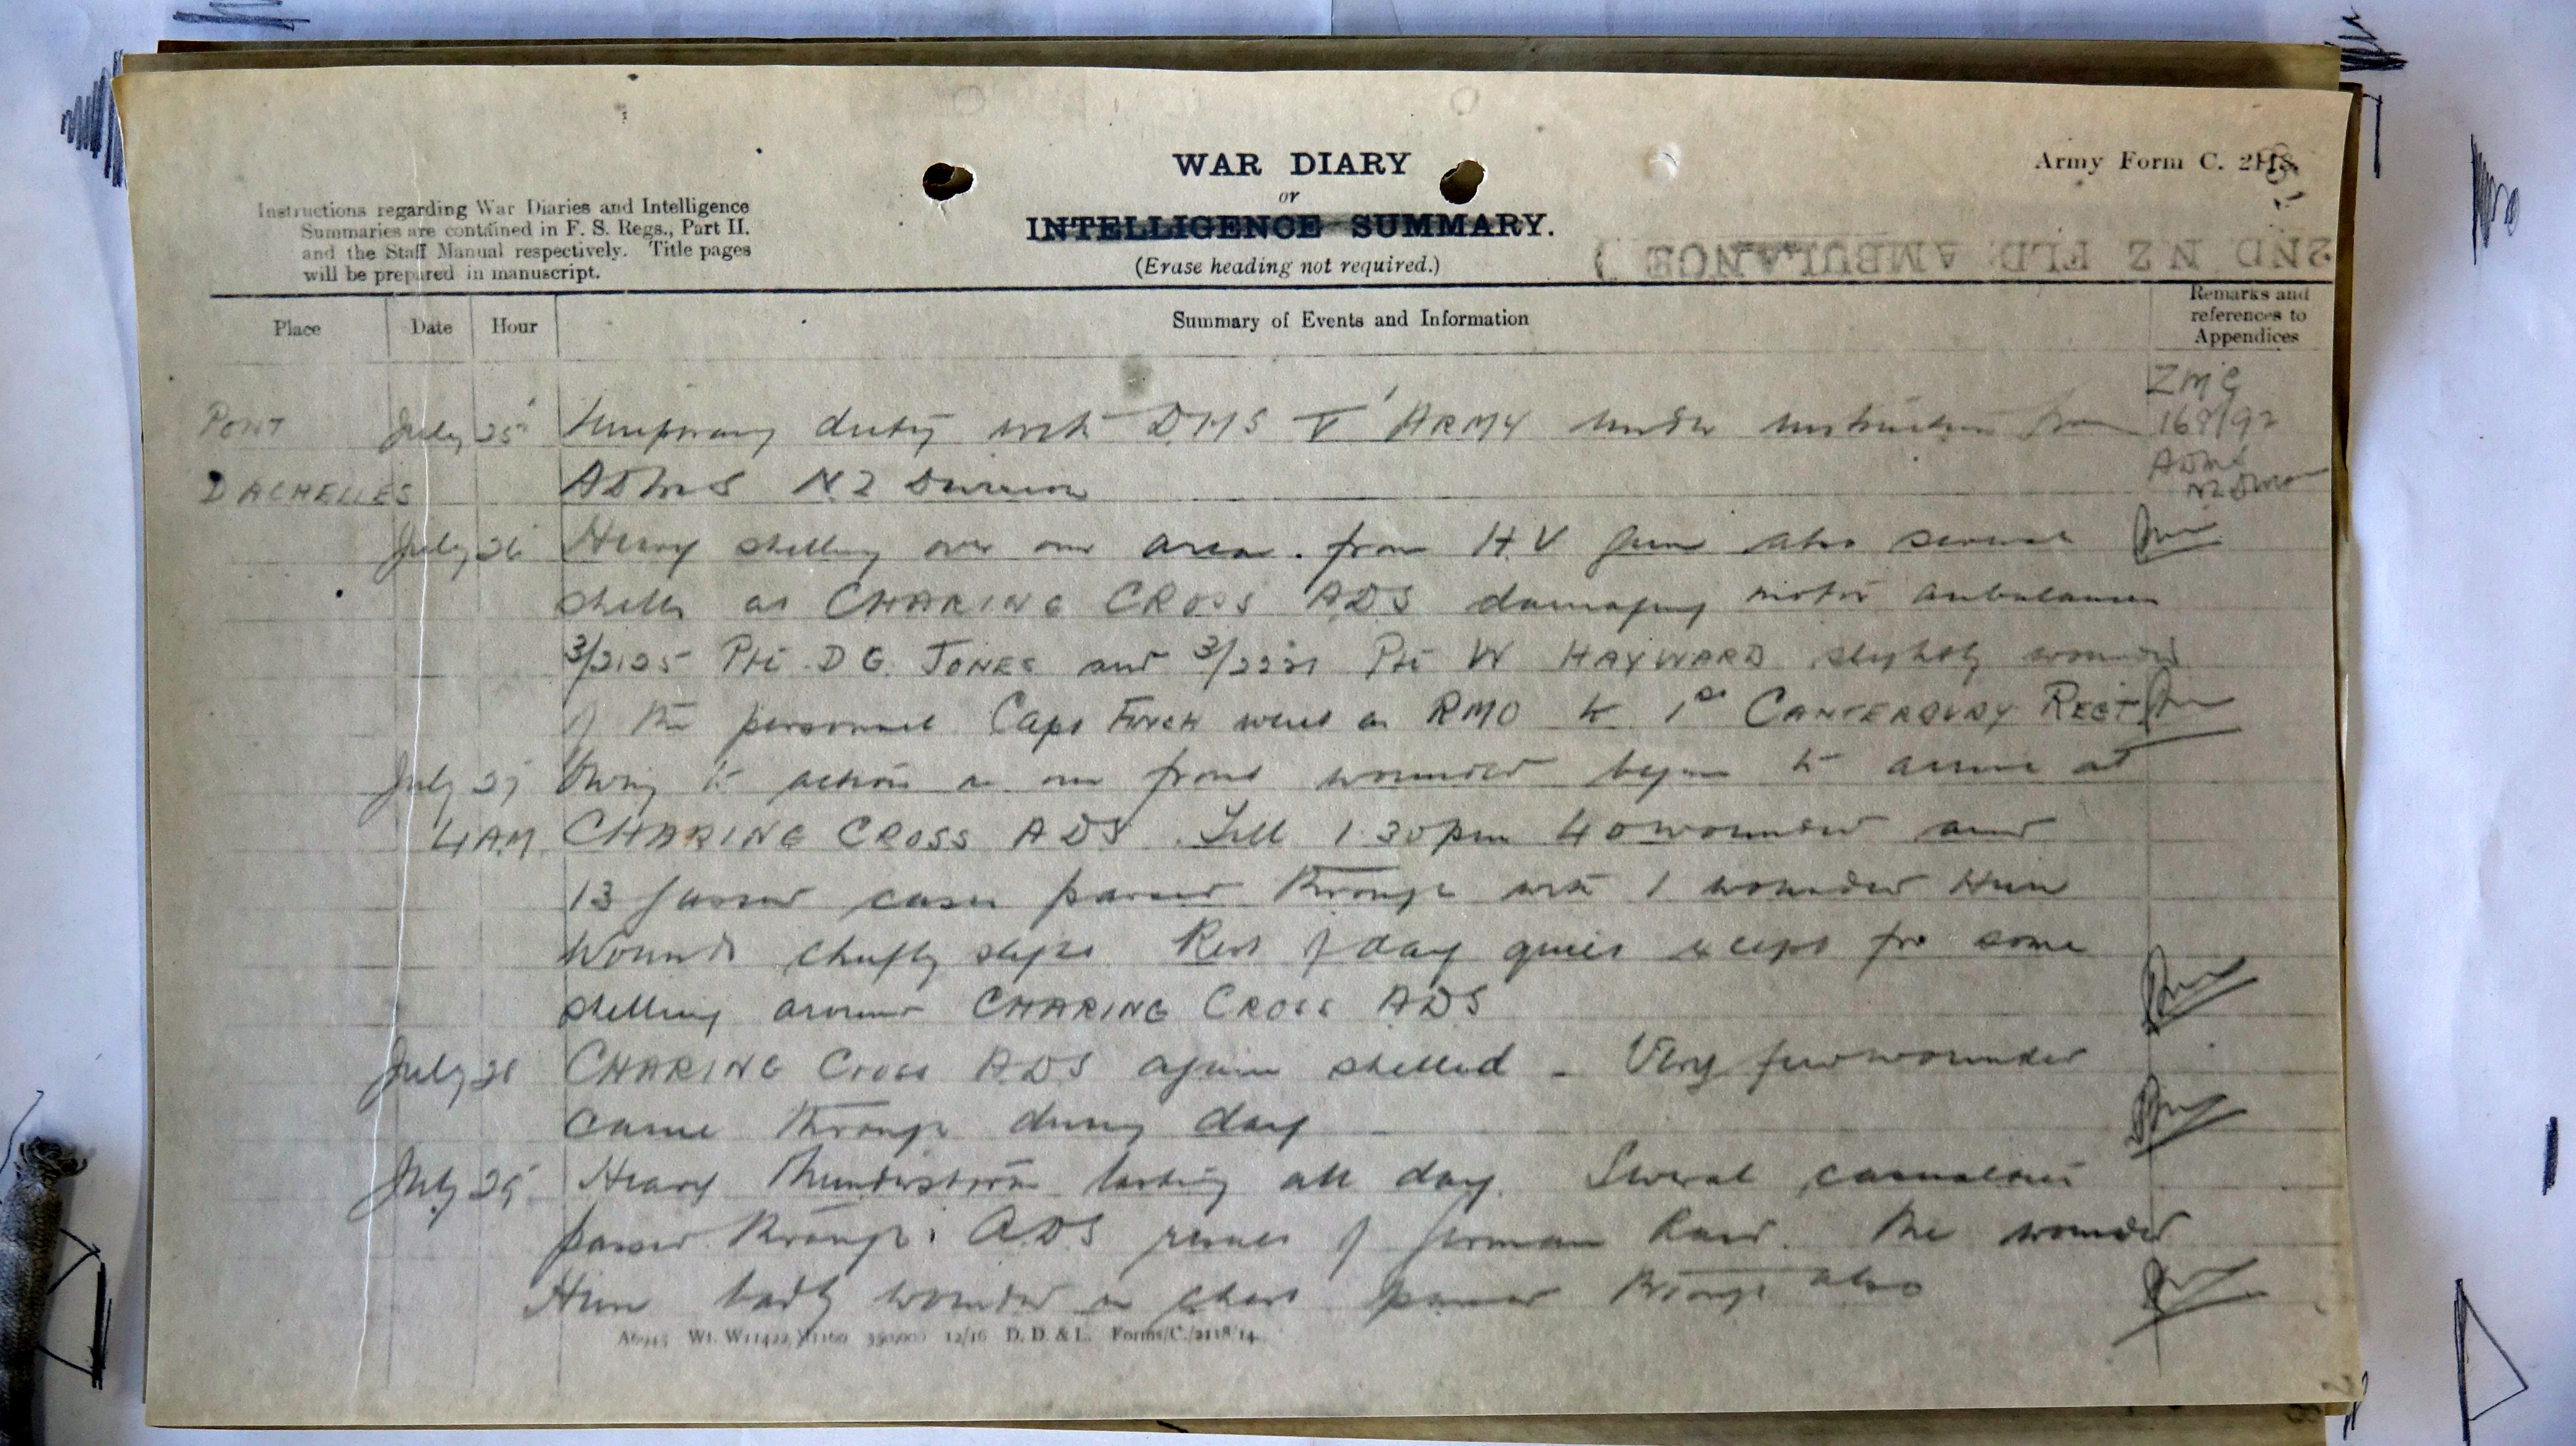 WAR DIARY
or
INTELLIGENCE SUMMARY.
(Erase heading not required.)
Army Form C. 2118.
Instructions regarding War Diaries and Intelligence
Summaries are contained in F. S. Regs., Part II.
and the Staff Manual respectively. Title pages
will be prepared in manuscript.
2ND NZ FLD AMBULANCE
Place Date Hour Summary of Events and Information Remarks and references to Appendices
PONT July 25 temporary duty with DMS V ARMY under instruction from ZMG 168/92
DACHELLES ADMS NZ Division ADMS NZ Division
July 26 Heavy shelling over our area. from H.V guns also several
shells at CHARING CROSS ADS damaging motor ambulances
3/2125 Pte D G. JONES and Pte W HAYWARD slightly wounded
of the personnel Capt FINCH went as RMO to 1st CANTERBURY REGT
July 27 Owing to action on our front wounded began to arrive at
4 AM. CHARING CROSS ADS. Till 1.30pm 40 wounded and
13 gassed cases passed through with 1 wounded Hun
Wounds chiefly slight Rest of day quiet except for some
shelling around CHARING CROSS ADS
July 28 CHARING CROSS ADS again shelled - Very few wounded
came through during day
July 29 Heavy thunderstorm lasting all day. Several casualties
passed through ADS result of German Raid. One wounded
Hun badly wounded in chest passed through also
12/16 D. D. & L. Forms/C./2118/14.